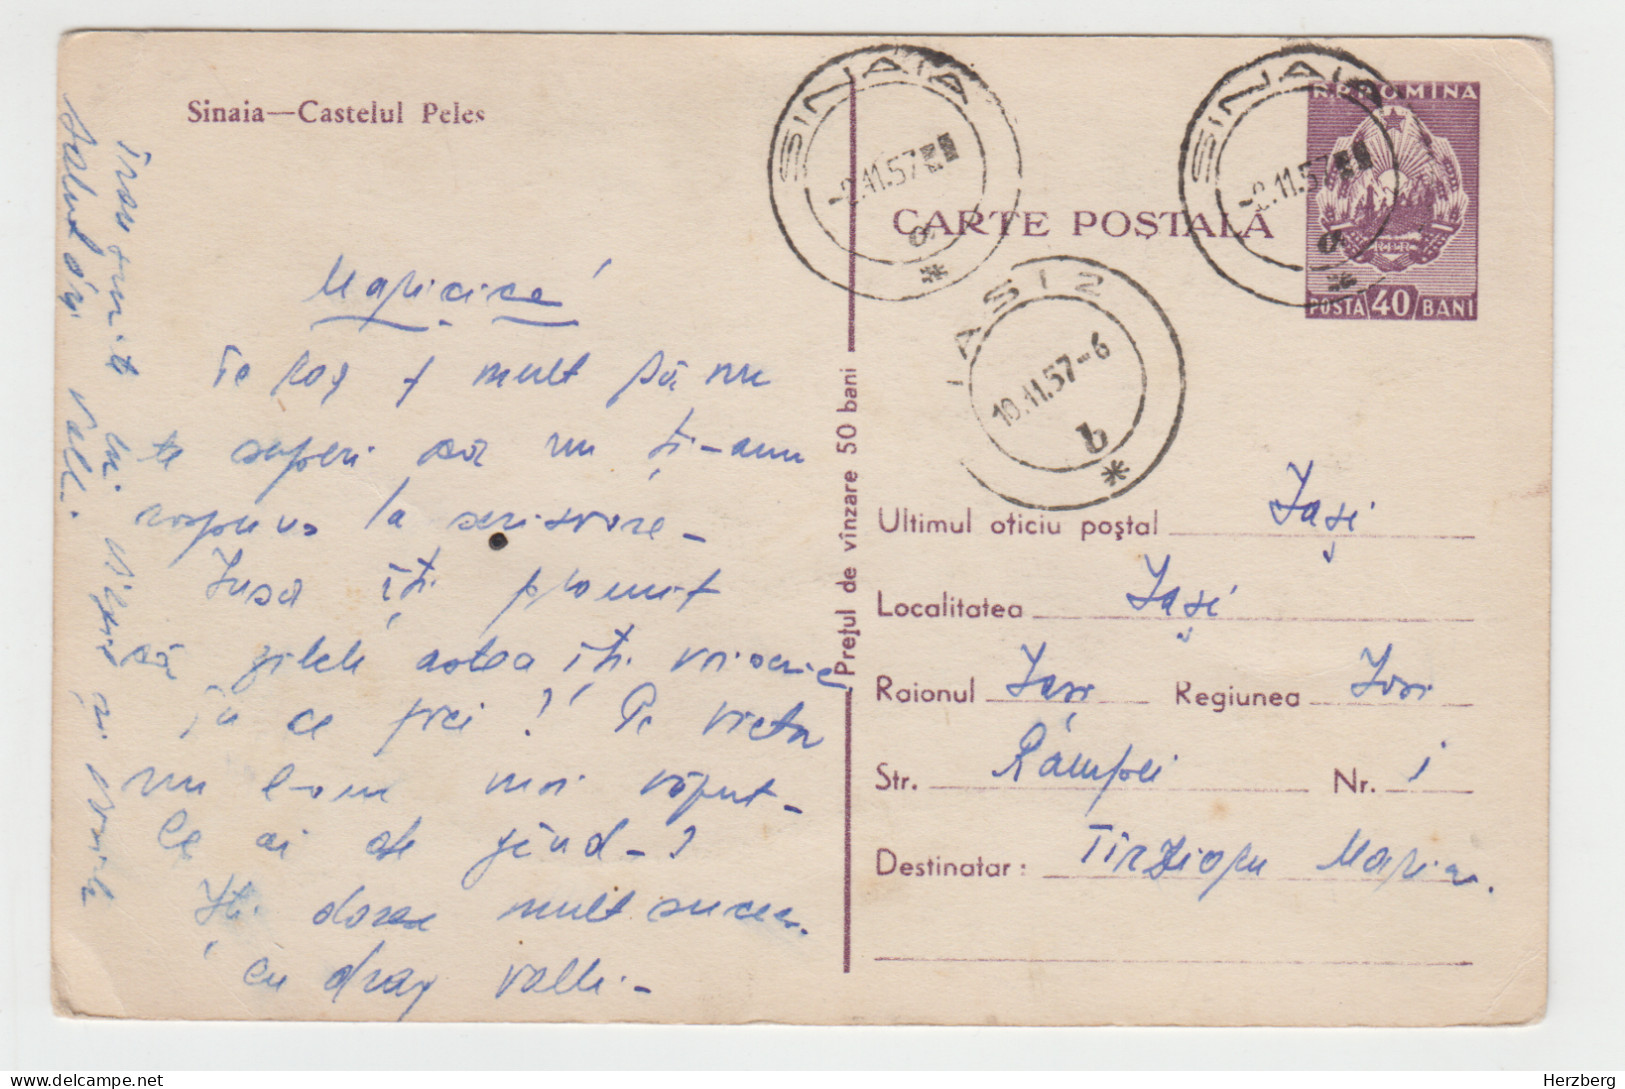 Sinaia—Castelul Peles
Maricica
Te rog f mult să nu
te superi că nu ți-am
răspuns la scrisoare –
Însă îți promit
că zilele astea îți voi scrie
În ce privi ? Pe Victor
nu l-am mai văzut –
Ce ai de gînd – ?
Îți doresc mult succes.
cu drag Valli. –
SINAIA
-2.11.57
a
*
SINAIA
-2.11.57
a
*
R.P. ROMINA
R.P.R.
POSTA 40 BANI
CARTE POȘTALĂ
IASI 2
10.11.57-6
b
*
Prețul de vînzare 50 bani
Ultimul oficiu poștal Iași
Localitatea Iași
Raionul Iași Regiunea Iași
Str. Râmpei Nr. 1
Destinatar: Tirziopu Maria
Herzberg